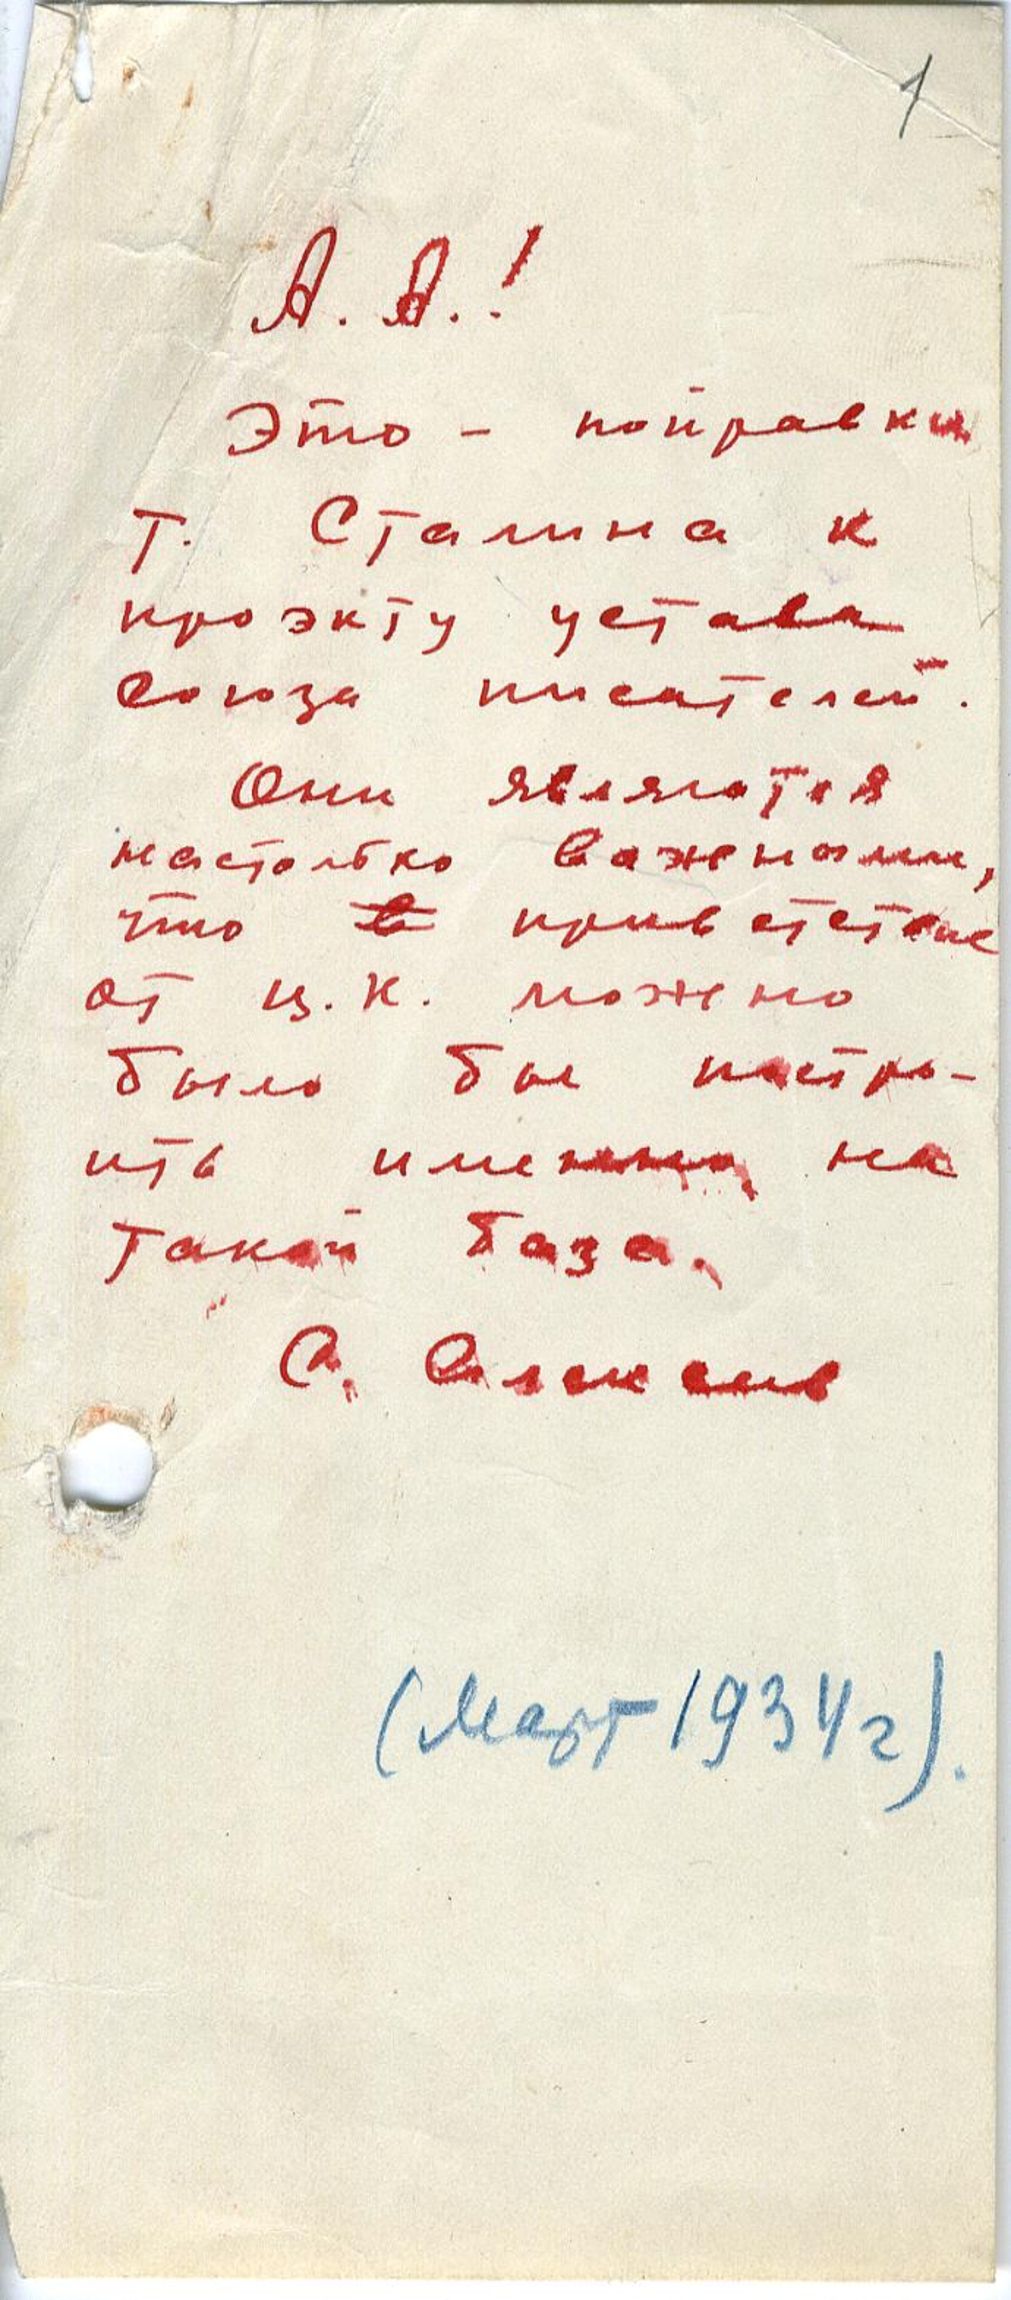 1
А. А.!
Это - поправки
т. Сталина к
проэкту устава
союза писателей.
Они являются
настолько важными,
что в приветствие
от ц.к. можно
было бы постро-
ить именно на
такой база.
С. Алексеев
(Март 1934 г).